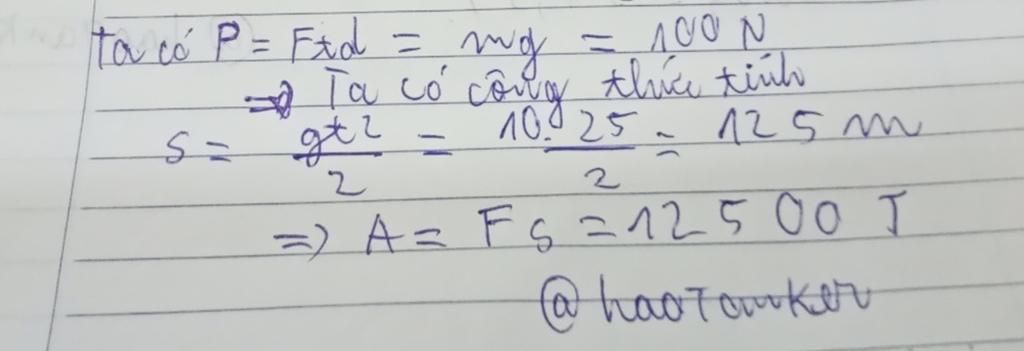 Ta có P = Ftd = mg = 100 N
=> Ta có công thức tính
s = gt²/2 = 10.25/2 = 125 m
=> A = Fs = 12500 J
@haoTanker